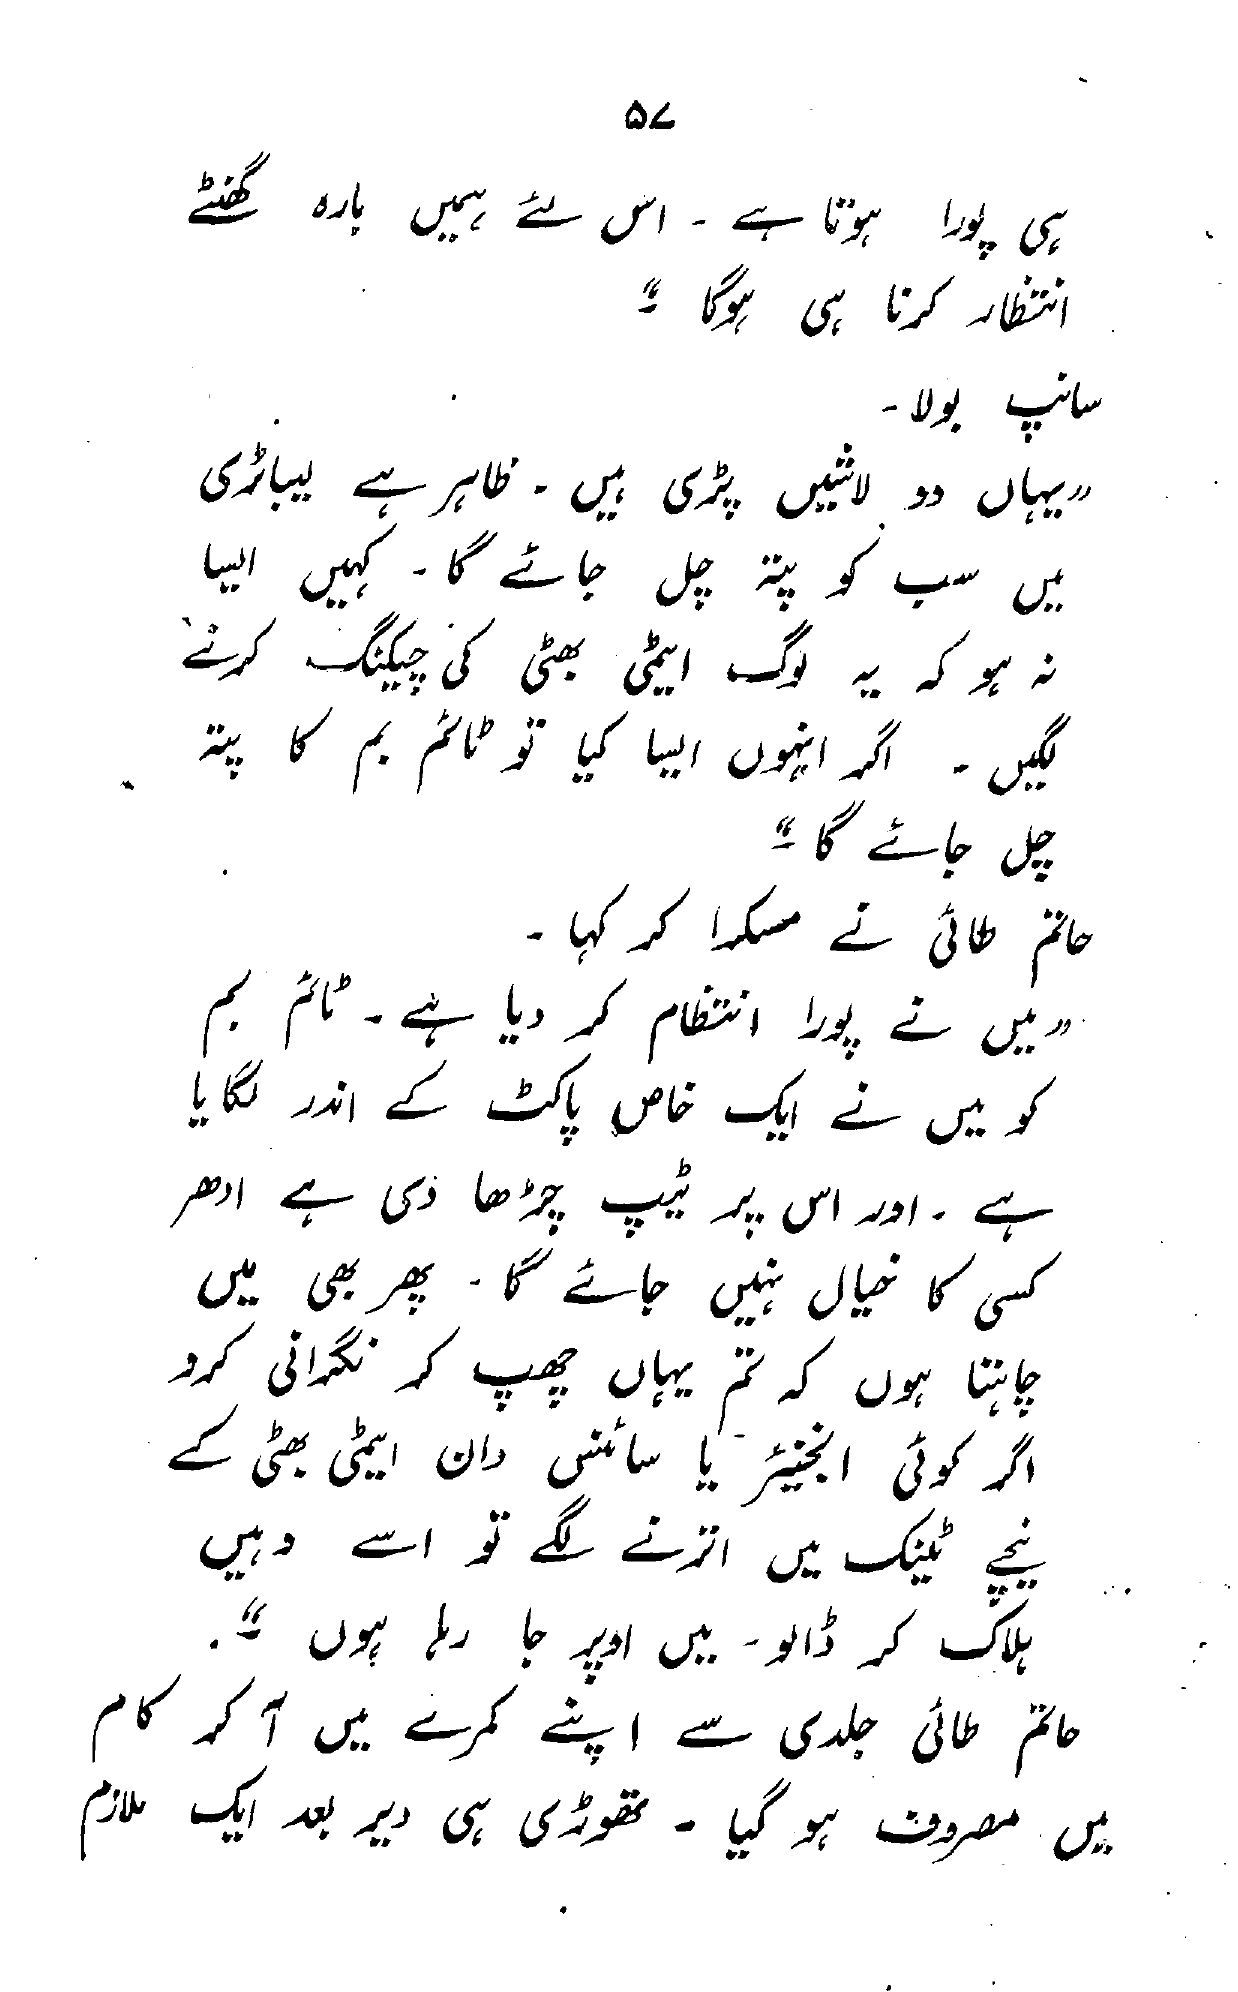 ۵۷
ہی پورا ہوتا ہے ۔ اس لئے ہمیں بارہ گھنٹے
انتظار کرنا ہی ہوگا ۔“
سانپ بولا ۔
”یہاں دو لاشیں پڑی ہیں ۔ ظاہر ہے لیباڑی
میں سب کو پتہ چل جائے گا ۔ کہیں ایسا
نہ ہو کہ یہ لوگ ایٹمی بھٹی کی چیکنگ کرنے
لگیں ۔ اگر انہوں ایسا کیا تو ٹائم بم کا پتہ
چل جائے گا ۔“
حاتم طائی نے مسکرا کر کہا ۔
”میں نے پورا انتظام کر دیا ہے ۔ ٹائم بم
کو میں نے ایک خاص پاکٹ کے اندر لگایا
ہے ۔ اور اس پر ٹیپ چڑھا دی ہے ادھر
کسی کا خیال نہیں جائے گا ۔ پھر بھی میں
چاہتا ہوں کہ تم یہاں چھپ کر نگرانی کرو
اگر کوئی انجنیئر یا سائنس دان ایٹمی بھٹی کے
نیچے ٹینک میں اترنے لگے تو اسے وہیں
ہلاک کر ڈالو ۔ میں اوپر جا رہا ہوں ۔“
حاتم طائی جلدی سے اپنے کمرے میں آ کر کام
میں مصروف ہو گیا ۔ تھوڑی ہی دیر بعد ایک ملازم